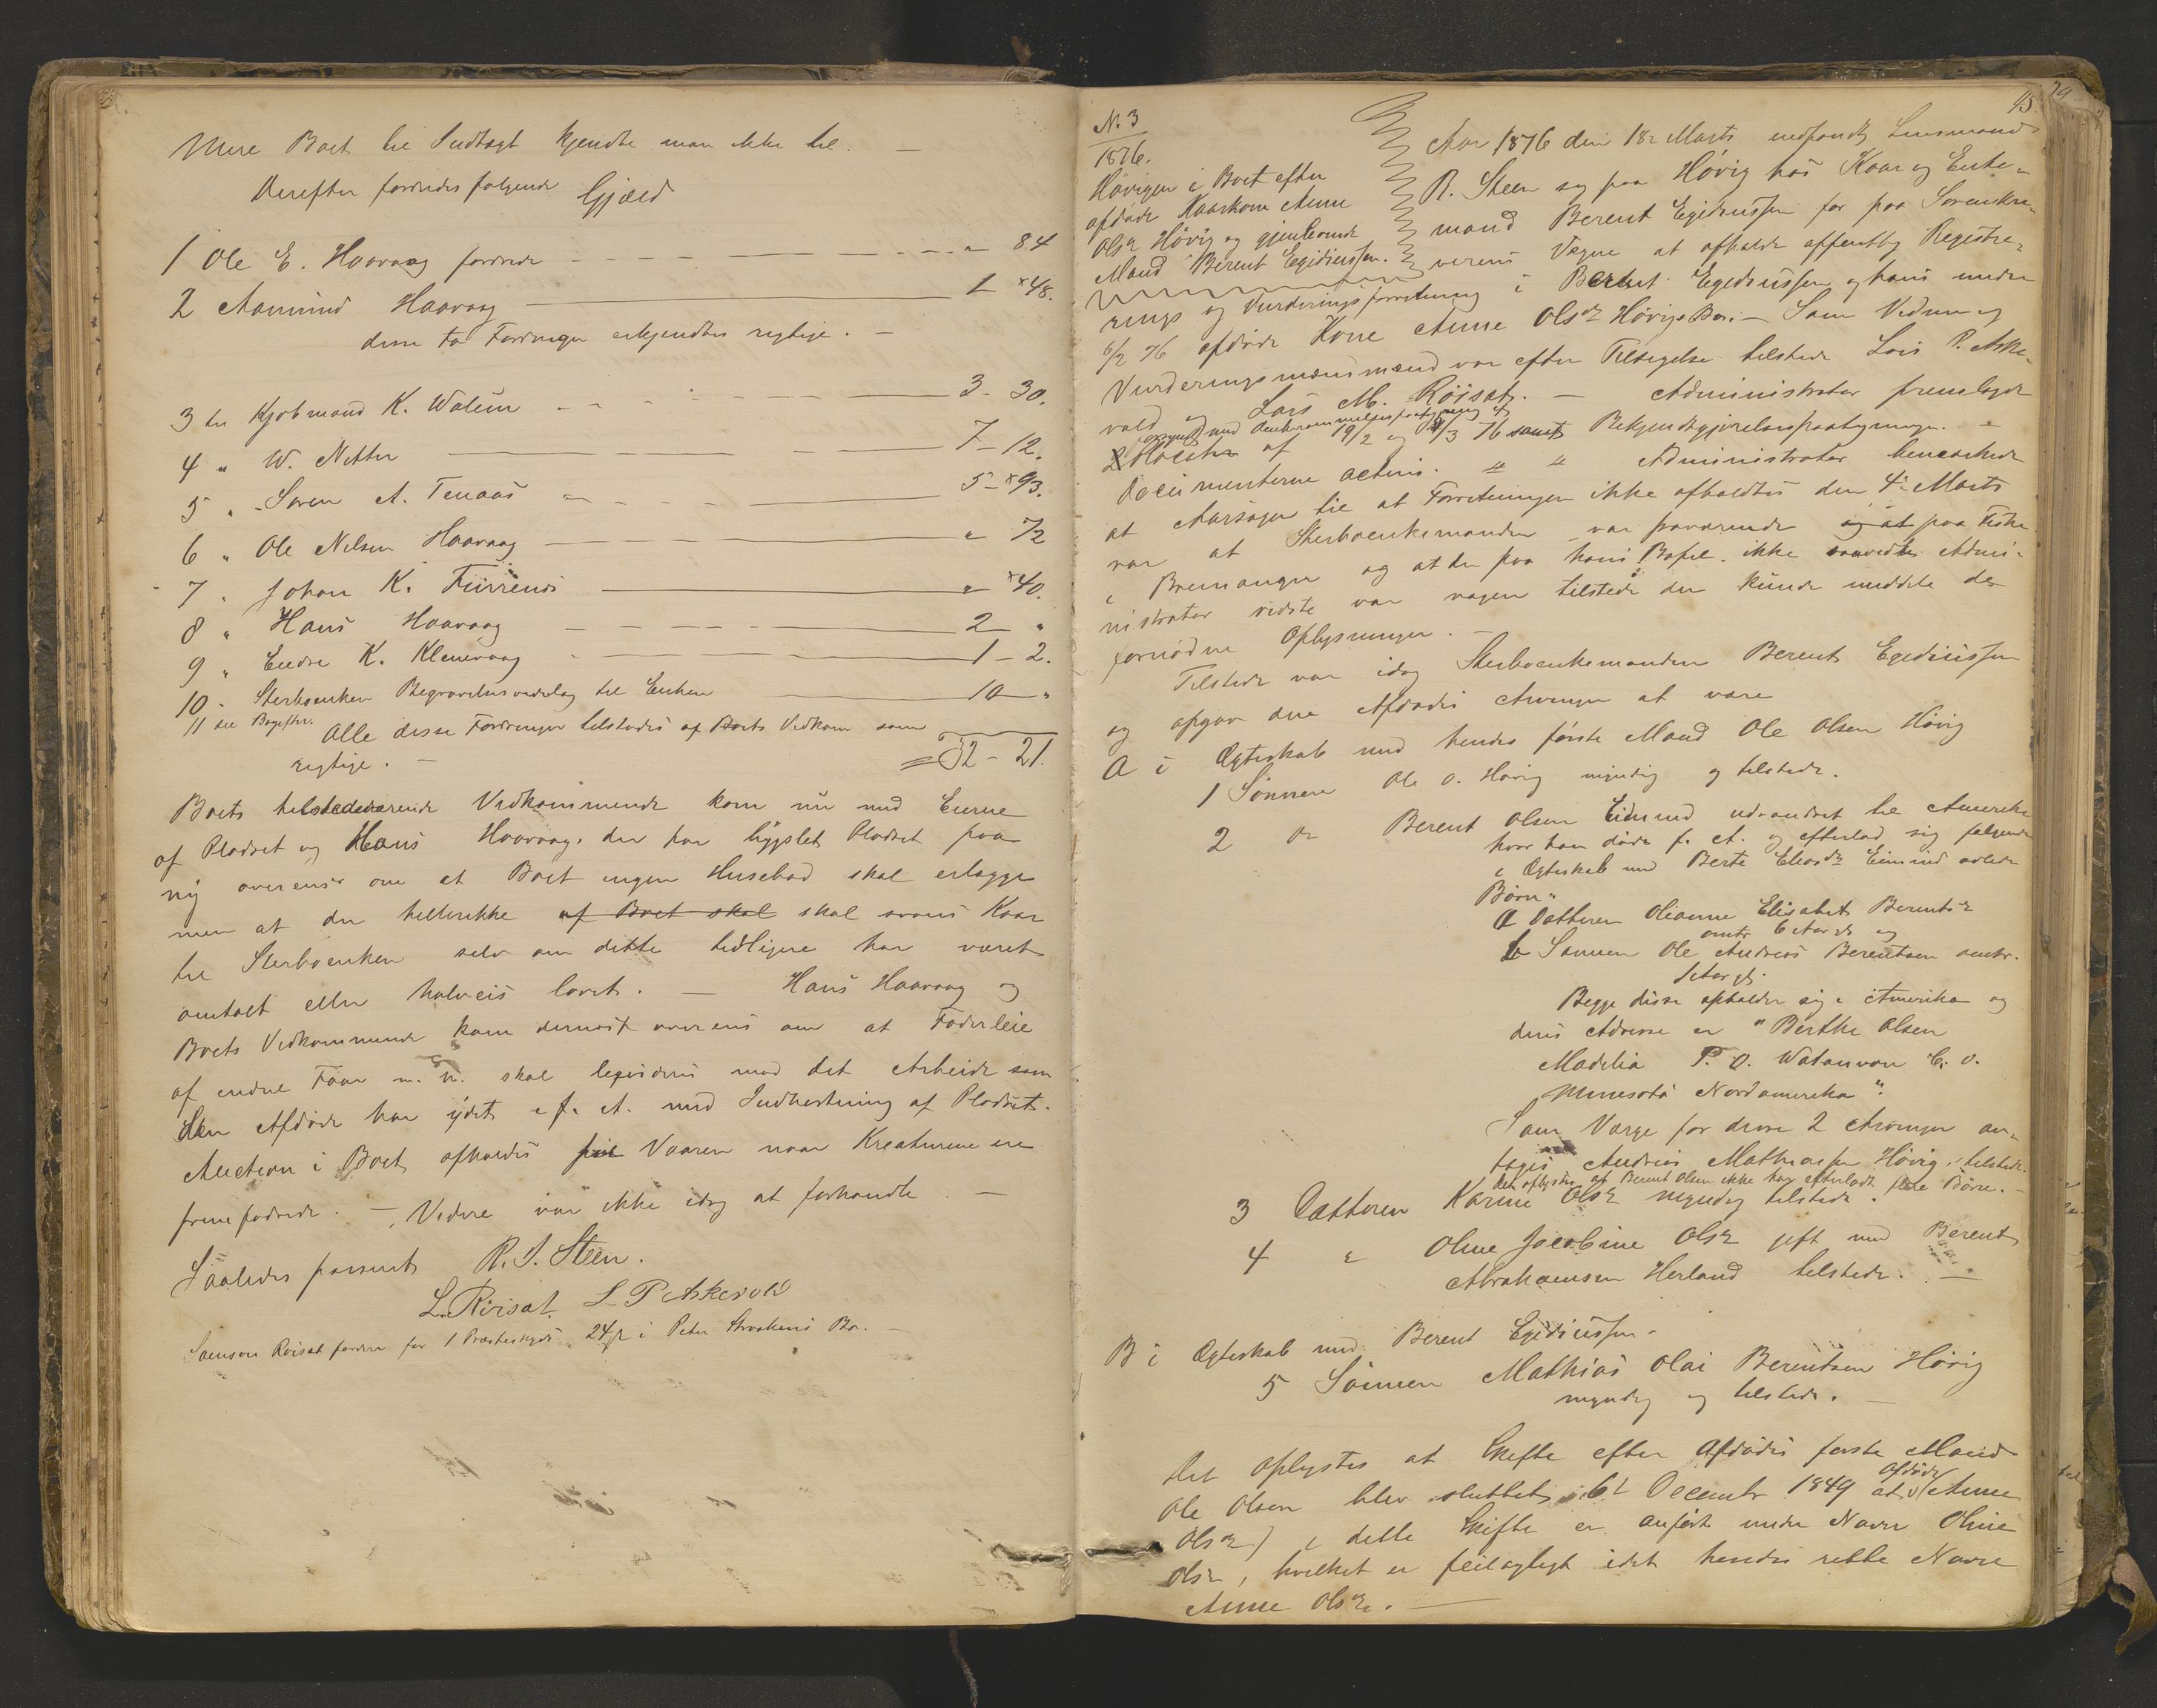 Mere Boet til Indtægt kjendte man ikke til. —
Derefter fordredes følgende Gjæld
1 Ole E. Haavaag fordrede — " 84
2 Aamund Haavaag — 1 48.
disse to Fordringer erkjendtes rigtige. —
3 til Kjøbmand K. Walem — 3 - 30.
4 " W. Netter — 7 - 12.
5 " Søren A. Tenaas — 5 - 93.
6 " Ole Nilsen Haavaag — " 72
7 " Johan K. — " 40.
8 " Hans Haavaag — 2 "
9 " Endre K. Klenevaag — 1 - 2.
10 - Sterboenken Begravelsesvederlag til Enken — 10 "
11 see Bagefter.
Alle disse Fordringer tilstodes af Boets Vedkom som
rigtige. — 32 - 21.
Boets tilstedeværende Vedkommende kom nu med Eierne
af Pladset og Hans Haavaag, der har bygslet Pladset paa
ny overens om at Boet ingen Husebod skal erlægge
men at der hellerikke af Boet skal skal svares Kaar
til Sterboenken selv om dette tidligere har været
omtalt eller halveis lovet. — Hans Haavaag og
Boets Vedkommende kom dernæst overens om at Foderleie
af endel Faar m. v. skal leqvideres mod det Arbeide som
den Afdøde har ydet i f. A. med Indhøstning af Pladset.
Auction i Boet afholdes til Vaaren naar Kreaturene ere
fremfodrede. — Videre var ikke idag at forhandle. —
Saaledes passeret R. S. Steen.
L. Röisat. L P Askevold
Samson Röisat fordrer for 1 24 i Peter Bo. —
45 79
N. 3
1876.
Hövigen i Boet efter
afdøde Kaarkone Anne
Olsdr Hövig og gjenlevende
Mand Berent Egidiussen.
Aar 1876 den 18de Marts indfandt Lensmand
R. Steen sig paa Hövig hos Kaar og Enke-
mand Berent Egidiussen for paa Sorenskri-
verens Vegne at afholde offentlig Registre-
rings og Vurderingsforretning i Berent Egediussen og hans under
6/2 76 afdøde Kone Anne Olsdr Hövigs Bo. — Som Vidner og
Vurderingsmænd var efter Tilsigelse tilstede Lars P. Aske-
vold og Lars M. Röisat. — Administrator fremlagde
forsynet med
2 af 19/2 og 4/3 76 samt Bekjendtgjørelsespaategninger. —
Documenterne acteres. " " Administrator bemærkede
at Aarsagen til at Forretningen ikke afholdtes den 4de Marts
var at Sterboenkemanden var fraværende og at paa Fiske
i Bremanger og at der paa hans Bopæl ikke saavidt Admi-
nistrator vidste var nogen tilstede der kunde meddele de
fornødne Oplysninger. —
Tilstede var idag Sterboenkemanden Berent Egediussen
og opgav den Afdødes Arvinger at være
A i Ægteskab med hendes første Mand Ole Olsen Hövig
1 Sönnen Ole O. Hövig myndig og tilstede.
2 Do Berent Olsen Eimind udvandret til Amerika
hvor han døde f. A. og efterlod sig følgende
i Ægteskab med Berte Eliasdr Eimind avlede
Børn "
a Datteren Oleanne Elisabet Berentsdr
omtr 6 Aar og
b Sønnen Ole Andreas Berentsen omtr.
Begge disse opholder sig i Amerika og
deres Adresse er " Berthe Olsen
Madelia P. O. Watonwan C. o.
Minesota Nordamerika ".
Som Værge for disse 2 Arvinger an-
tages Andreas Mathiassen Hövig, tilstede.
Det oplystes at Berent Olsen ikke har efterladt flere Børn. —
3 Datteren Karine Olsdr myndig tilstede.
4 " Oline Jacobine Olsdr gift med Berent
Abrahamsen Herland tilstede. —
B i Ægteskab med Berent Egidiussen.
5 Sönnen Mathias Olai Berentsen Hövig
myndig og tilstede. —
Det oplystes at Skifte efter Afdødes første Mand
Ole Olsen blev sluttet 6te Decembr 1849 at Afdøde (Anne
Olsdr) i dette Skifte er anført under Navn Oline
Olsdr, hvilket er feilagtigt idet hendes rette Navn
Anne Olsdr. —